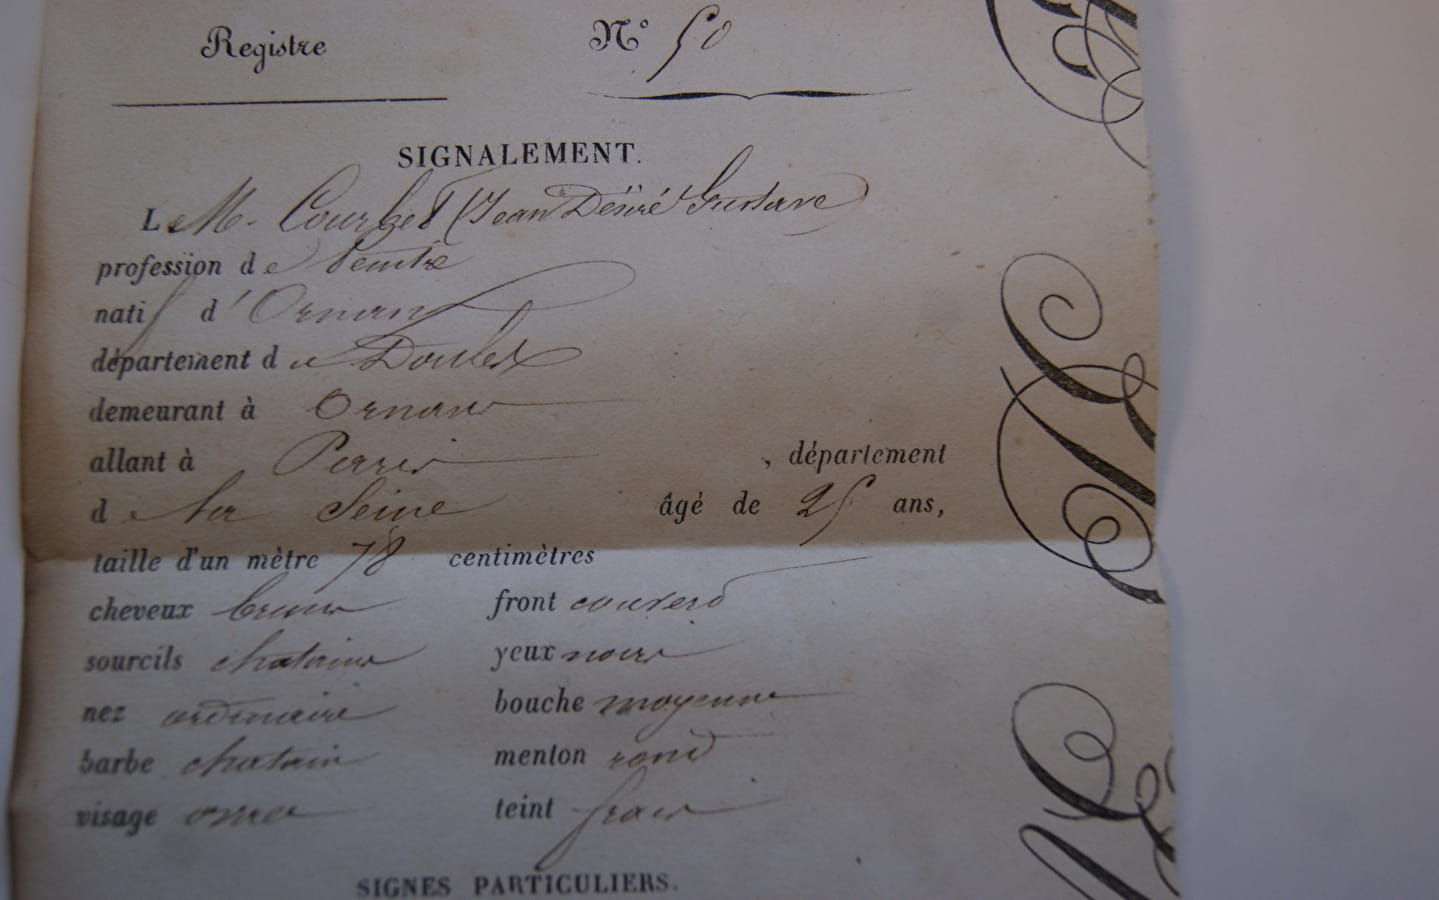 Registre N° 50
SIGNALEMENT.
Le M. Courbet (Jean Désiré Gustave
profession de Peintre
natif d'Ornans
département de Doubs
demeurant à Ornans
allant à Paris, département
de la Seine âgé de 25 ans,
taille d'un mètre 78 centimètres
cheveux bruns front couvert
sourcils chatains yeux noirs
nez ordinaire bouche moyenne
barbe chatain menton rond
visage teint frais
SIGNES PARTICULIERS.